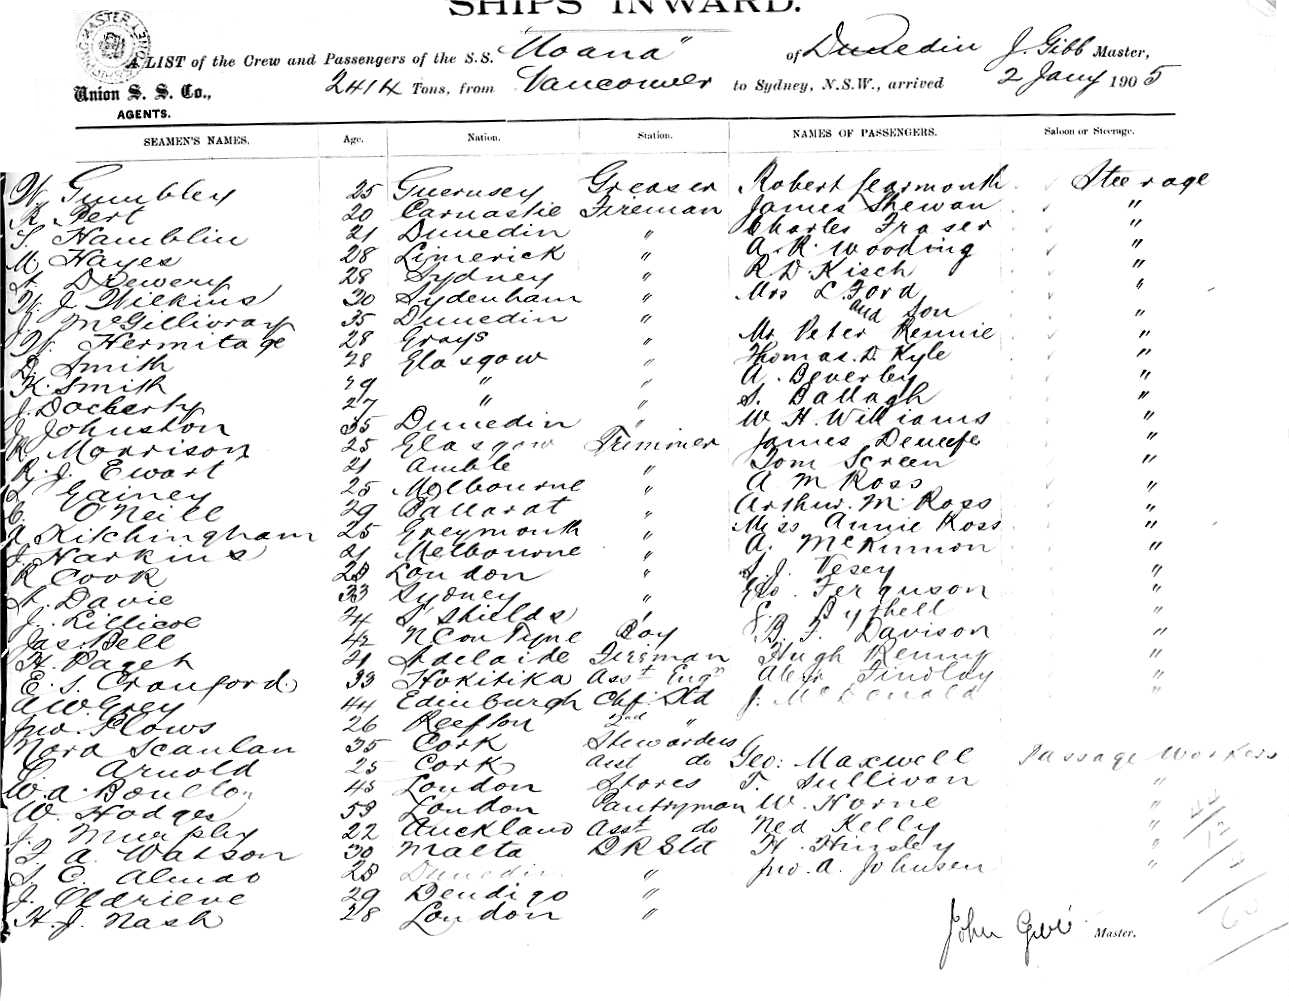 SHIPS INWARD.
A LIST of the Crew and Passengers of the S.S. "Moana" of Dunedin J. Gibb Master,
Union S. S. Co., 2414 Tons, from Vancouver to Sydney, N.S.W., arrived 2 Jany 1905
AGENTS.
SEAMEN'S NAMES. Age. Nation. Station. NAMES OF PASSENGERS. Saloon or Steerage.
W. Gumbley 25 Guernsey Greaser Robert Learmonth Steerage
R. Pert 20 Carnastie Fireman James Shewan "
S. Hamblin 21 Dunedin " Charles Fraser "
M. Hayes 28 Limerick " A. R. Wooding "
A. Drewery 28 Sydney " R. D. Kisch "
W. J. Wilkins 30 Sydenham " Mrs L. Ford "
J. McGillivray 35 Dunedin " and Son "
W. Hermitage 28 Grays " Mr Peter Rennie "
D. Smith 28 Glasgow " Thomas. D. Kyle "
K. Smith 29 " " A. Beverley "
J. Docherty 27 " " S. Ballagh "
J. Johnston 35 Dunedin " W. H. Williams "
R. Morrison 25 Glasgow Trimmer James "
R. J. Ewart 21 Amble " Tom Screen "
Gainey 25 Melbourne " A M Ross "
O'Neill 29 Ballarat " Arthur. M. Ross "
A. Kitchingham 25 Greymouth " Miss Annie Ross "
J. Harkins 21 Melbourne " A. McKinnon "
R Cook 28 London " S. J. Vesey "
A. Davie 33 Sydney " Geo. Ferguson "
J. Killicoe 24 S' Shields E. Bythell "
Jas. Bell 42 N C on Tyne Boy B. F. Davison "
H. Paget 21 Adelaide Fireman Hugh Kenny "
E. S. Cranford. 33 Hokitika Asst Engr Alexr Findlay "
A W. Grey 44 Edinburgh Chf. Std J. McDonald "
Jno. Plows 26 Reefton 2nd "
Nora Scanlan 35 Cork Stewardess
C. Arnold 25 Cork asst do Geo: Maxwell Passage Workers
W. A. Boulton 45 London Stores T. Sullivan "
W. Hodges 59 London Pantryman W. Horne "
J. Murphy 22 Auckland Asst do Ned Kelly "
F. A. Watson 30 Malta D R Std H. Hinsby "
S. C. Almao 28 Dunedin " Jno. A. Johnsen "
J. Oldrieve 29 Bendigo "
H. J. Nash 28 London "
John Gibb Master.